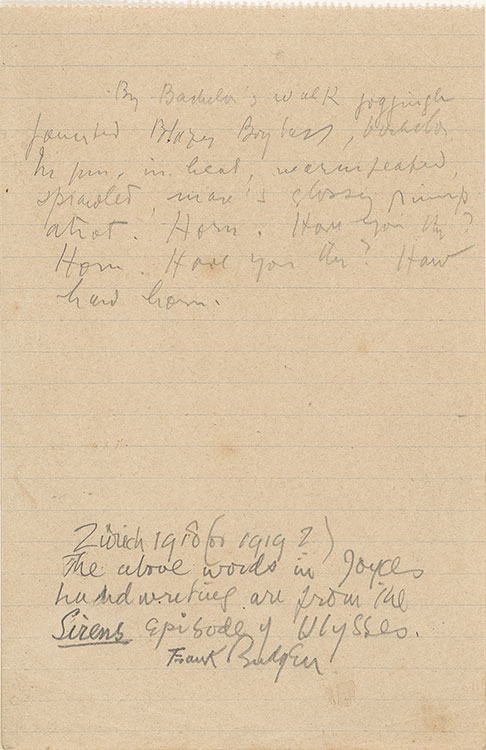 By Bachelor's walk joggingly
jaunted Blazes Boylan, bachelor
In sun, in heat, warmseated,
sprawled, mare's glossy rump
atrot. Horn. Have you the?
Horn. Have you the? Haw
haw horn.
Zürich 1918 (or 1919?)
The above words in Joyces
handwriting are from the
Sirens episode of Ulysses.
Frank Budgen